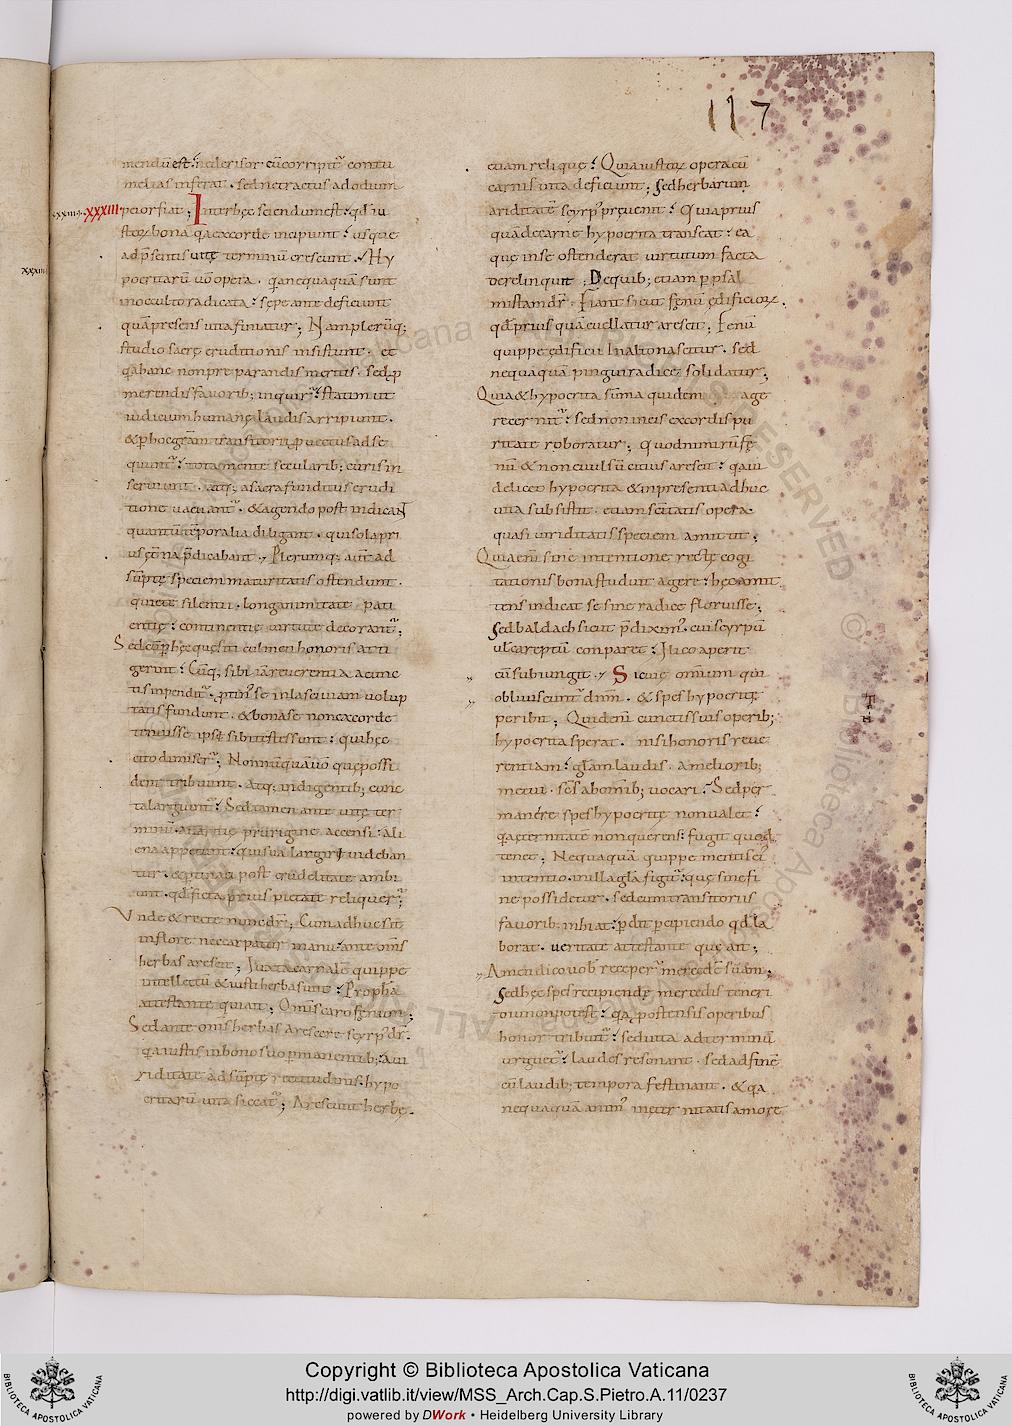 117
mendū est; ne derisor cū corripit᷑ contu
melias inferat. sed ne tractus ad odium
XXXIII peior fiat; Inter hęc sciendum est; qd̄ iu
storū bona q̄a ex corde incipiunt; usque
ad p̄sentis uitę terminū crescunt. Hy
pocritarū uō opera. q̄a nequaquā sunt
in occulto radicata; sępe ante deficiunt
quā presens uita finiatur; Nam plerūq;
studio sacrę eruditionis insistunt. et
q̄a hanc non pre parandis meritis. sed ꝓ
merendis fauorib; inquir̄; statim ut
iudicium humanę laudis arripiunt.
& ꝑ hoc gr̄am transitorii ꝓuectus adse
quunt᷑; tota mente secularib; curis in
seruiunt. atq; a sacra funditus erudi
tione uacuant᷑. & agendo post indicant
quantū tēporalia diligant. qui sola pri
us ęt̄na p̄dicabant. Plerumq; aūt ad
sūptę speciem maturitatis ostendunt.
quiete silentii. longanimitate pati
entię; continentię uirtute decorant᷑;
Sed cū ꝑ hęc quęsiti culmen honoris atti
gerint; Cūq; sibi iā reuerentia a cunc
tis inpendit᷑. ꝓtin᷒ se in lasciuiam uolup
tatis fundunt. & bona se non ex corde
tenuisse ipsi sibi testes sunt; qui hęc
cito dimiser̄; Nonnūquā uō quę possi
dent tribuunt. Atq; indigentib; cunc
ta largiunt᷑; Sed tamen ante uitę ter
minū. auaritię prurigine accensi; ali
ena appetunt; qui sua largiri uideban
tur. & ꝑtinaci post crudelitate ambi
unt. qd̄ ficta prius pietate reliquer᷑;
Vnde & recte nunc dr̄; Cum adhuc sit
in flore nec carpatur manu; ante om̄s
herbas arescit; Iuxta carnalē quippe
intellectū & iusti herba sunt; Propha
attestante qui ait; Om̄is caro fęnum;
Sed ante om̄s herbas arescere scyrp᷒ dr̄.
q̄a iustis in bono suo ꝑmanentib; a ui
riditate adsūptę rectitudinis. hypo
critarū uita siccat᷑; Arescunt herbę
etiam reliquę; Quia iustorū opera cū
carnis uita deficiunt; Sed herbarum
ariditatē scyrp᷒ pręuenit; Quia prius
quā de carne hypocrita transeat; ea
quę in se ostenderat uirtutum facta
derelinquit; De quib; etiam ꝑ psal
mistam dr̄. Fiant sicut fęnū ędificiorū.
qd̄ prius quā euellatur arescit; Fenū
quippe ędificii In alto nascitur. sed
nequaquā pingui radice solidatur;
Quia & hypocrita sūma quidem age
re cernit᷑; sed non in eis ex cordis pu
ritate roboratur; quod nimirū fę
nū & non euulsū citius arescit; q̄a ui
delicet hypocrita & in presenti adhuc
uita subsistit. etiam sc̄itatis opera.
quasi uiriditatis speciem amittit;
Quia en̄i sine intentione rectę cogi
tationis bona studuit agere; hęc amit
tens indicat se sine radice floruisse;
Sed baldach sicut p̄dixim᷒. cui scyrpū
ul̄ carectū conparet; Ilico aperit
cū subiungit. Sic uię omnium qui
obliuiscunt᷑ dm̄. & spes hypocritę
peribit; Quid en̄i cunctis suis operib;
hypocrita sperat. nisi honoris reue
rentiam; gl̄am laudis. a meliorib;
metui. sc̄s ab om̄ib; uocari; Sed per
manere spes hypocritę non ualet;
q̄a ęternitatē non querens; fugit quod
tenet; Nequaquā quippe mentis ei᷒
intentio. in illa gl̄a figit᷑. quę sine fi
ne possidetur. sed cum transitoriis
fauorib; inhiat; ꝑdit ꝑcipiendo qd̄ la
borat. ueritate attestante quę ait;
Amen dico uob̄ receper᷑ mercedē suam;
Sed hęc spes recipiendę mercedis teneri
diu non potest; q̄a ꝓ ostensis operibus
honor tribuit᷑; sed uita ad terminū
urguet᷑; laudes resonant. sed ad finē
cū laudib; tempora festinant. & q̄a
nequaquā anim᷒ in ęternitatis amore
Copyright © Biblioteca Apostolica Vaticana
http://digi.vatlib.it/view/MSS_Arch.Cap.S.Pietro.A.11/0237
powered by DWork • Heidelberg University Library